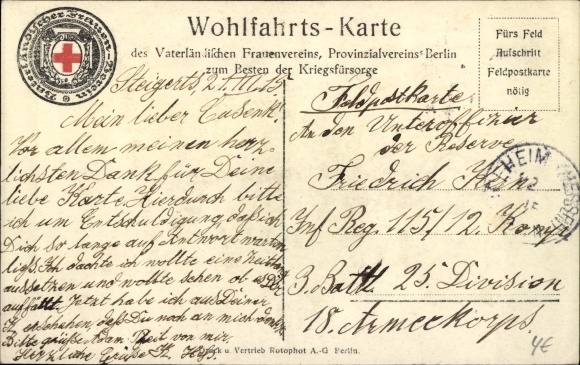 Wohlfahrts-Karte
des Vaterländischen Frauenvereins, Provinzialvereins Berlin
zum Besten der Kriegsfürsorge
Vaterländischer Frauen-Verein
Fürs Feld
Aufschrift
Feldpostkarte
nötig
Steigerts, 21.11.15
Mein lieber
Vor allem meinen herz-
lichsten Dank für Deine
liebe Karte. Hierdurch bitte
ich um Entschuldigung, daß ich
Dich so lange auf Antwort warten
ließ. Ich dachte ich wollte eine
aussetzen und wollte sehen ob es Dir
auffällt. Jetzt habe ich aus Deiner
ersehen, daß Du noch an mich denkst.
Bitte grüße Theil von mir.
Herzliche Grüße
Feldpostkarte
An den Unteroffizier
der Reserve
Friedrich
Inf Reg. 115/12. Komp
3. Batl. 25. Division
18. Armeekorps
HEIM
Druck u. Vertrieb Rotophot A.-G. Berlin.
4€